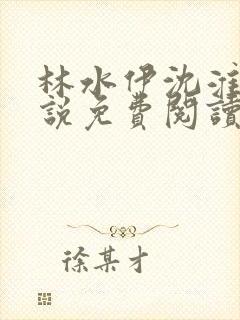 林水伊沈淮
說免費閱讀
徐某才